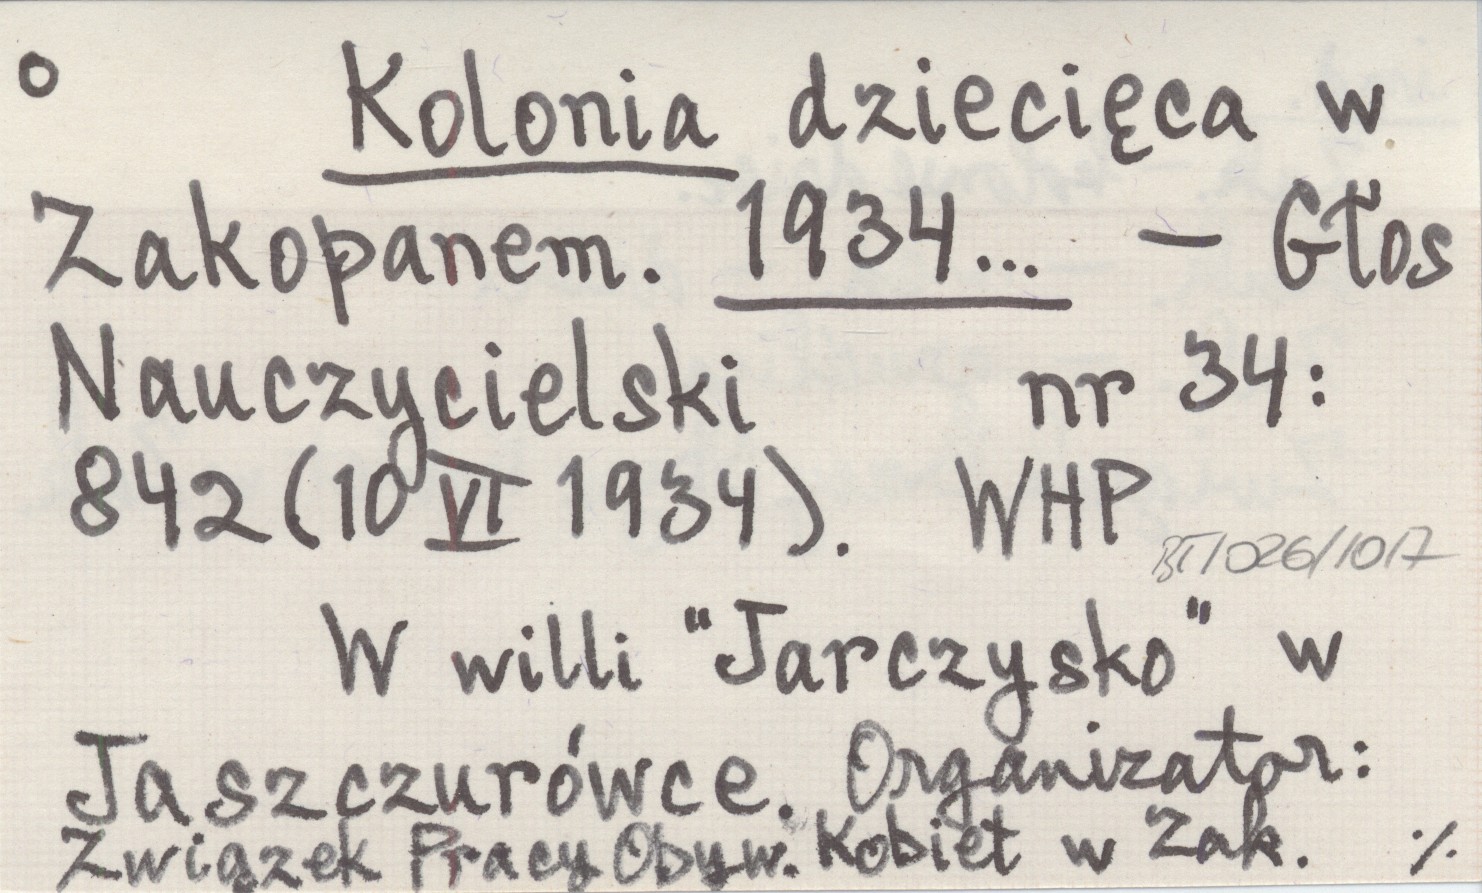 o Kolonia dziecięca w
Zakopanem. 1934... - Głos
Nauczycielski nr 34:
842 (10 VI 1934). WHP
BT/026/1017
W willi "Jarczysko" w
Jaszczurówce. Organizator:
Związek Pracy Obyw. Kobiet w Zak. ./.